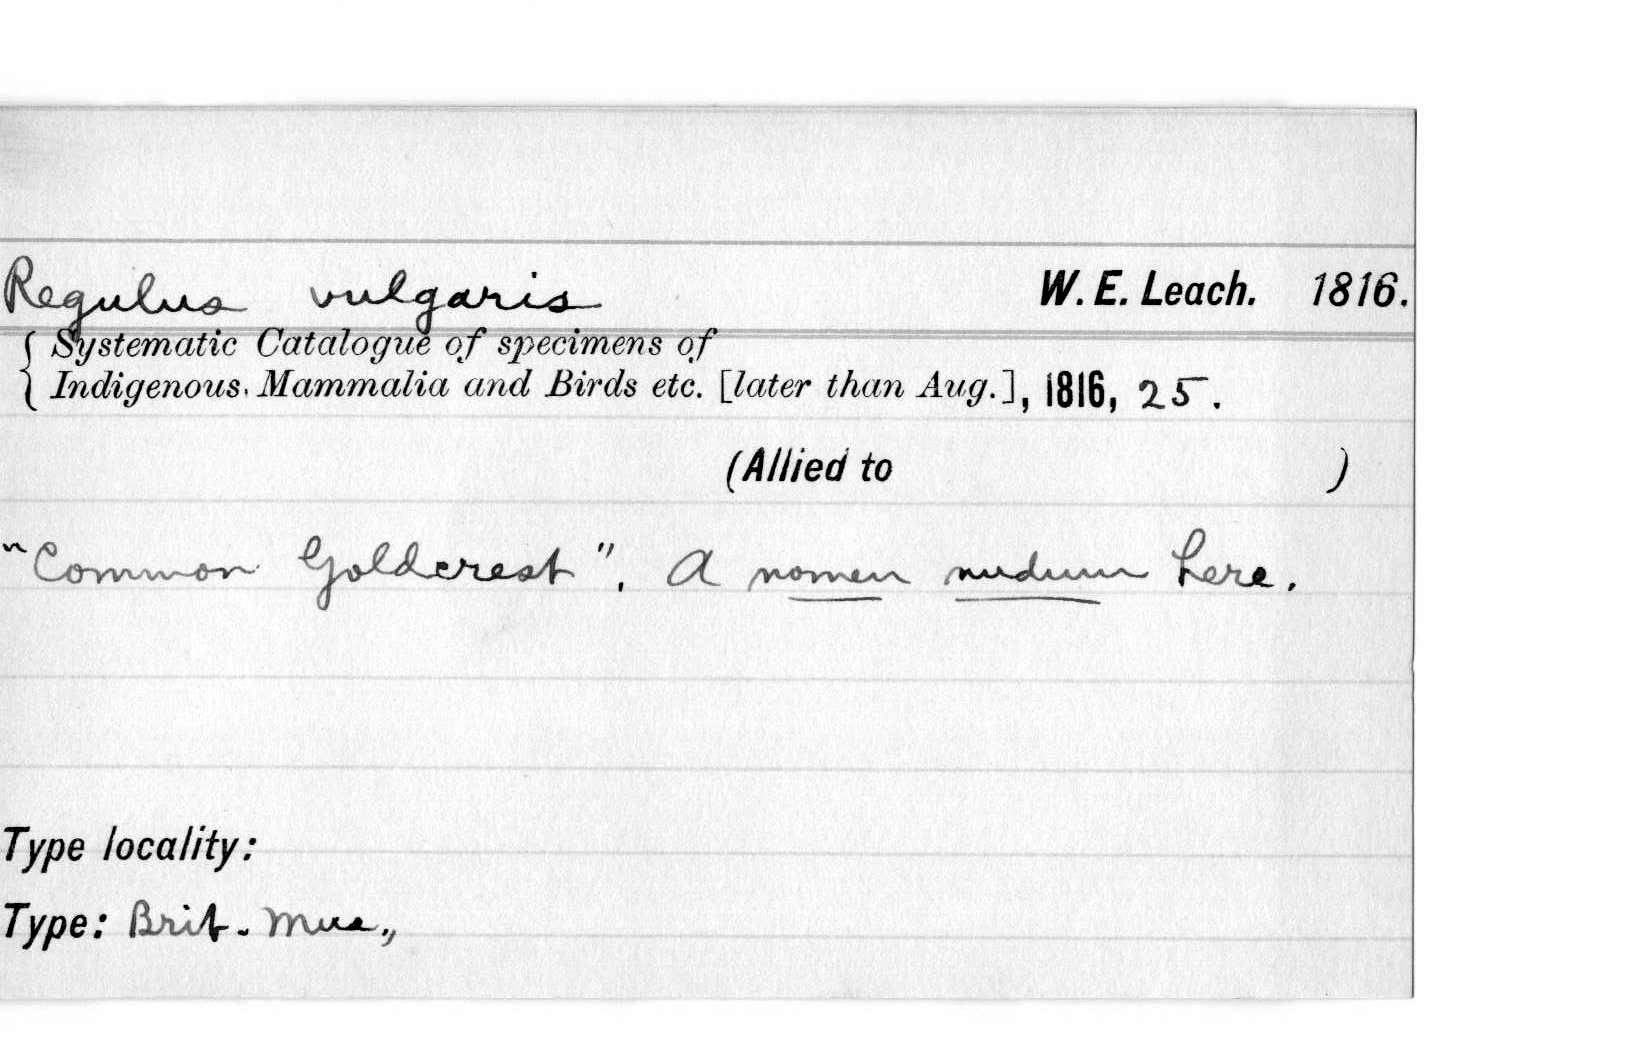 Regulus vulgaris W. E. Leach. 1816.
{ Systematic Catalogue of specimens of
Indigenous. Mammalia and Birds etc. [later than Aug.], 1816, 25.
(Allied to )
"Common Goldcrest". A nomen nudum here.
Type locality:
Type: Brit. Mus.,